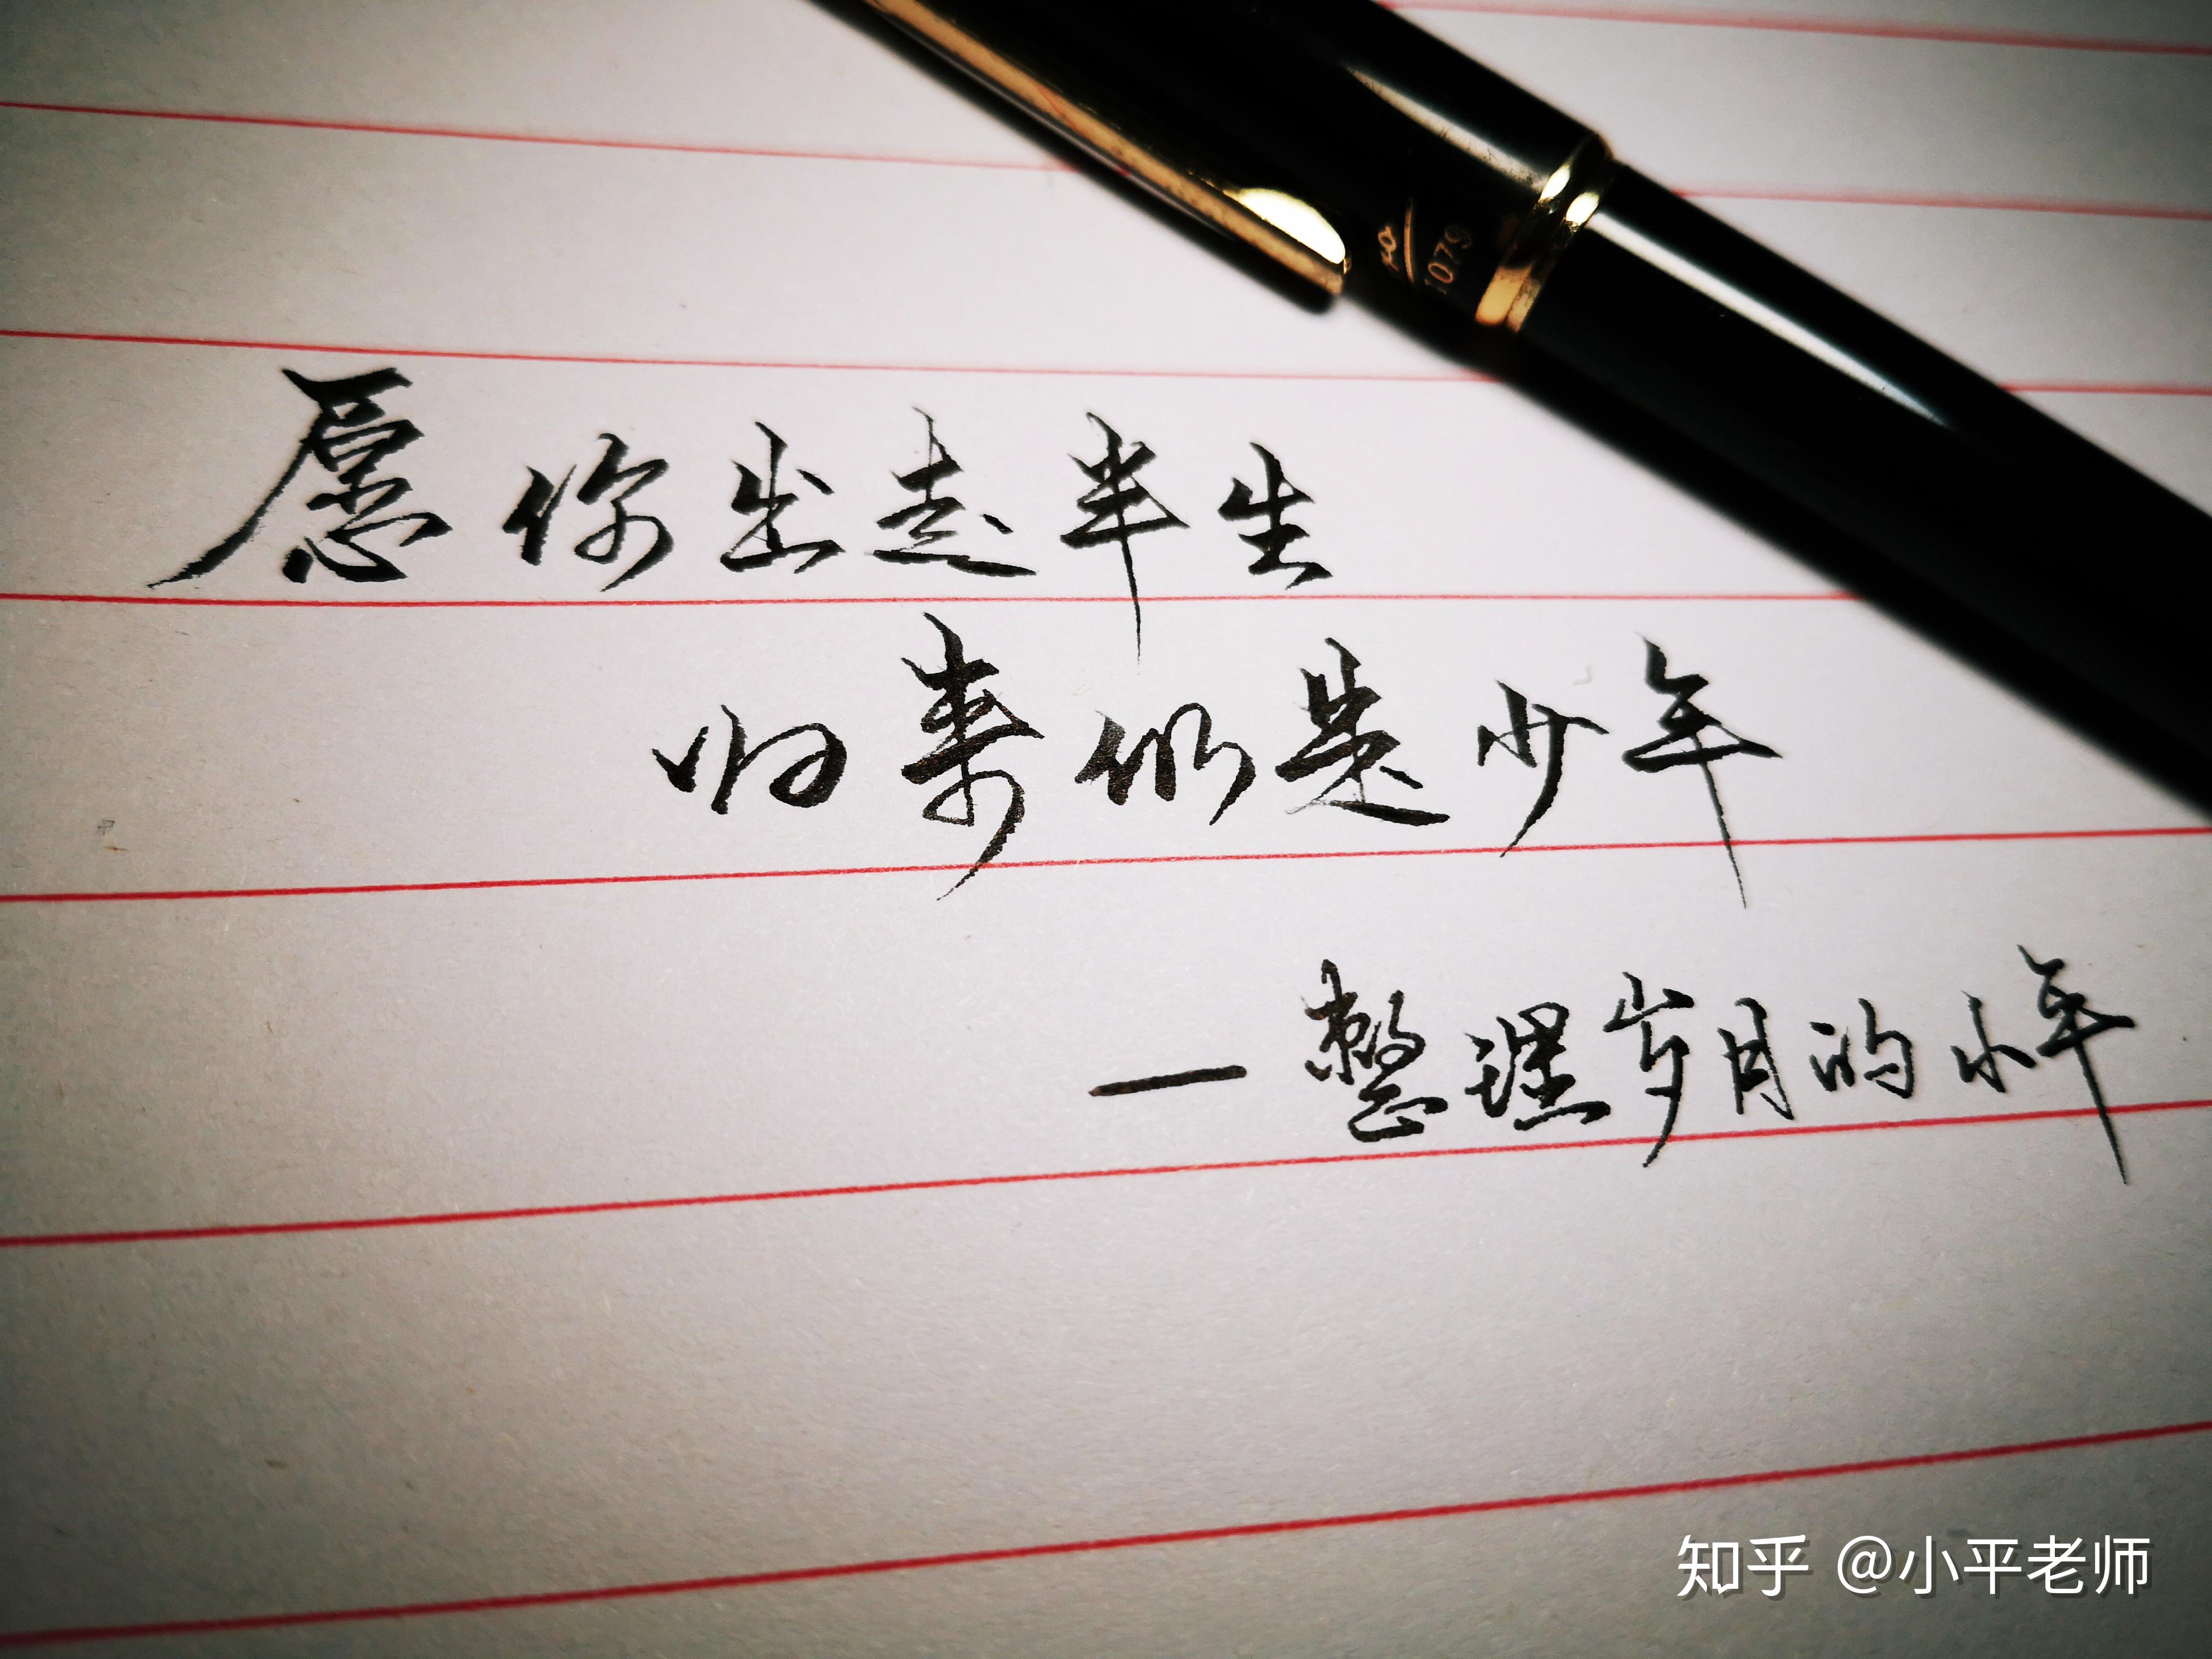 1079
愿你出走半生
归来仍是少年
一整理岁月的小年
知乎 @小平老师